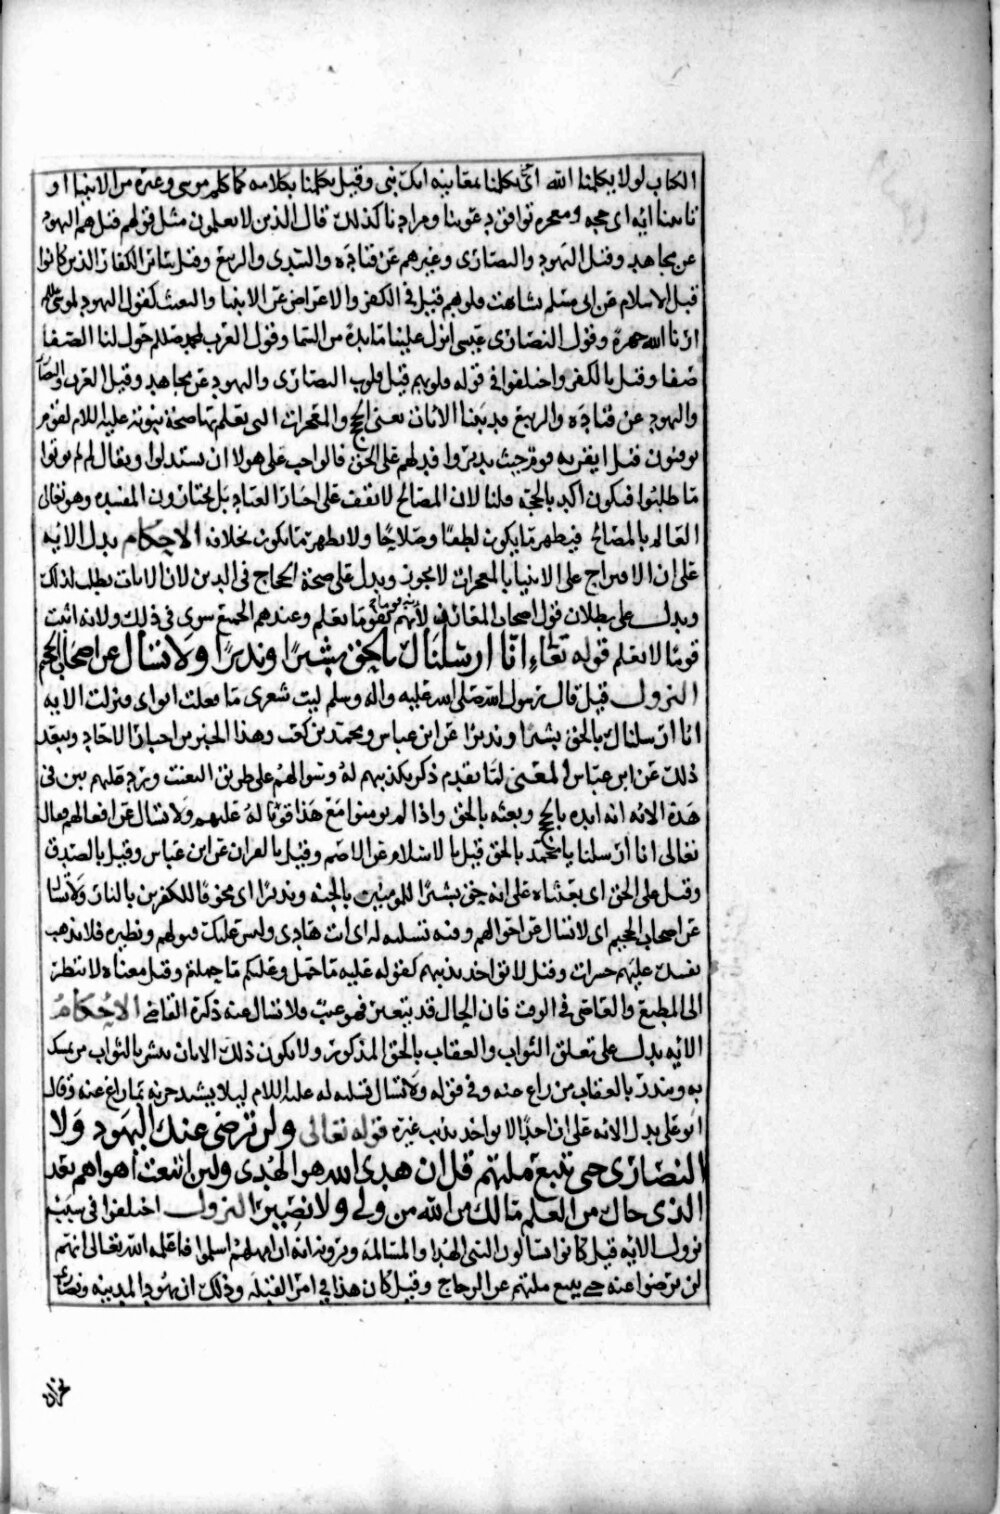 الكتاب لولا يكلمنا الله اي يكلمنا معاينه انك نبي وقيل يكلمنا بكلامه كما كلم موسى وغيره من الانبيا او
تاتينا ايه اي حجه ومعجزه توافق دعوتنا ومرادنا كذلك قال الذين لا يعلمون مثل قولهم قيل هم اليهود
عن مجاهد وقيل اليهود والنصارى وغيرهم عن قتاده والسدي والربيع وقيل سائر الكفار الذين كانوا
قبل الاسلام عن ابي مسلم تشابهت قلوبهم قيل في الكفر والاعتراض عن الانبيا والتعنت كقول اليهود لموسى
ارنا الله جهرة وقول النصارى عيسى انزل علينا مايدة من السما وقول العرب لمحمد صلعم حول لنا الصفا
ذهبا وقيل بالكفر واختلفوا في قوله قلوبهم قيل قلوب النصارى واليهود عن مجاهد وقيل العرب والنصارى
واليهود عن قتاده والربيع قد بينا الايات يعني الحجج والمعجزات التي يعلم بها صحة نبوته عليه السلام لقوم
يوقنون قيل ايقن به قوم حيث تدبروا فدلهم على الحق فالواجب على هولا ان يستدلوا ويقال لم لم يوتوا
ما طلبوا فيكون اكد بالحجة قلنا لان المصالح لا تقف على اختيار العباد بل يختارون المفسده وهو تعالى
العالم بالمصالح فيظهر ما يكون لطفا وصلاحا ولا يظهر ما يكون بخلافه الاحكام يدل الايه
على ان الاقتراح على الانبيا بالمعجزات لا يجوز ويدل على صحة الحجاج في الدين لان الايات يطلب لذلك
ويدل على بطلان قول اصحاب المعارف لانهم بقوم يعلم وعندهم الجميع سوى في ذلك ولانه اثبت
قوما لا يعلم قوله تعالى انا ارسلناك بالحق بشيرا ونذيرا ولا تسال عن اصحاب الجحيم
النزول قيل قال رسول الله صلى الله عليه واله وسلم ليت شعري ما فعلت ابواي فنزلت الايه
انا ارسلناك بالحق بشيرا ونذيرا عن ابن عباس ومحمد بن كعب وهذا الخبر من اخبار الاحاد ويبعد
ذلك عن ابن عباس المعنى لما تقدم ذكر تكذيبهم له وسوالهم على طريق التعنت ورد عليهم بين في
هذه الايه انه ايده بالحجج وبعثه بالحق واذا لم يومنوا مع هذا فوباله عليهم ولا تسال عن افعالهم فقال
تعالى انا ارسلناك يا محمد بالحق قيل بالاسلام عن الاصم وقيل بالقران عن ابن عباس وقيل بالصدق
وقيل على الحق اي بعثناه على انه حق بشيرا للمومنين بالجنه ونذيرا اي مخوفا للكفرين بالنار ولا تسال
عن اصحاب الجحيم اي لا تسال عن احوالهم وفيه تسليه له اي انت هادي وليس عليك قبولهم ونظيره فلا تذهب
نفسك عليهم حسرات وقيل لا تواخذ بذنبهم كقوله عليه ما حمل وعليكم ما حملتم وقيل معناه لا تنظر
الى المطيع والعاصي في الوقت فان الحال قد يتغير فهو غيب فلا تسال عنه ذكره القاضي الاحكام
الايه يدل على تعلق الثواب والعقاب بالحق المذكور ولا يكون ذلك الا بان يبشر بالثواب من تمسك
به وينذر بالعقاب من زاغ عنه وفي قوله ولا تسال تسليه له عليه السلام ليلا يشتد حزنه بما زاغ عنه وقال
ابو علي يدل الايه على ان احدا لا يواخذ بذنب غيره قوله تعالى ولن ترضى عنك اليهود ولا
النصارى حتى تتبع ملتهم قل ان هدى الله هو الهدى ولين اتبعت اهواهم بعد
الذي جاك من العلم مالك من الله من ولي ولا نصير النزول اختلفوا في سبب
نزول الايه قيل كانوا يسالون النبي الهدنة والمسالمه ويرونه انه ان امهلهم اسلموا فاعلمه الله تعالى انهم
لن يرضوا عنه حتى يتبع ملتهم عن الزجاج وقيل كان هذا في امر القبلة وذلك ان يهود المدينه ونصارى
نجران